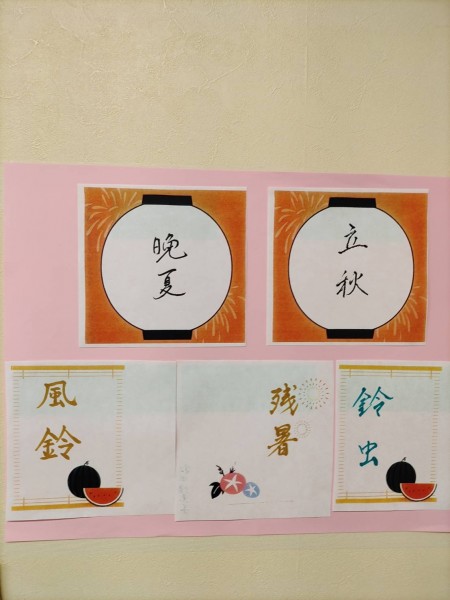 晩夏
立秋
風鈴
残暑
鈴虫